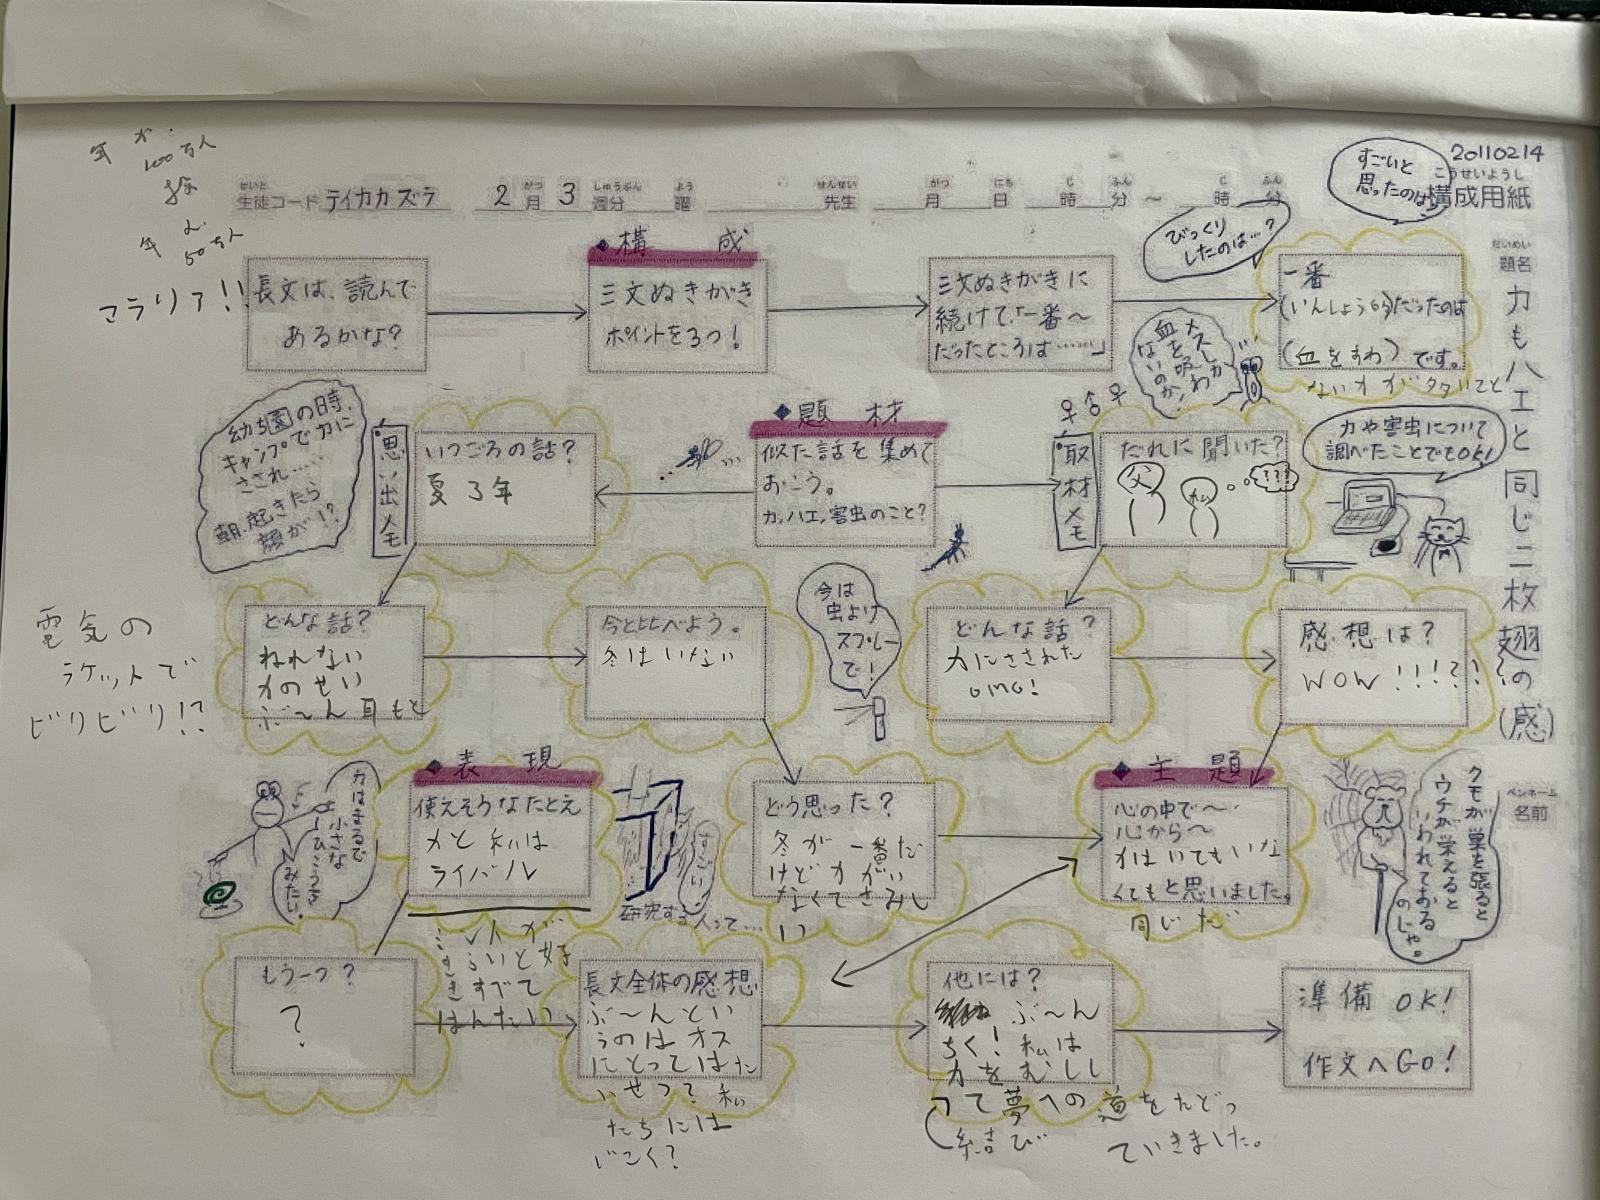 年 カ
100万人
年
50万人
マラリア!!
20110214
こうせいようし
構成用紙
せいと
生徒コード テイカカズラ
がつ しゅうぶん よう
2月3週分 曜
せんせい がつ にち じ ふん じ ふん
先生 月 日 時 分 ～ 時 分
すごいと
思ったのは
びっくり
したのは…?
だいめい
題名
カもハエと同じ二枚翅の(感)
ペンネーム
名前
長文は、読んで
あるかな?
◆構成
三文ぬきがき
ポイントを3つ!
三文ぬきがきに
続けて、「一番～
だったところは……」
一番
(いんしょう的)だったのは
(血をすわ)です。
ないカがタタいてと
メスしか
血を吸わ
ないのか!
♀ ♀
幼ち園の時、
キャンプでカに
さされ……
朝、起きたら
顔が!?
思い出メモ
いつごろの話?
夏 3年
◆題材
似た話を集めて
おこう。
カ,ハエ,害虫のこと?
取材メモ
だれに聞いた?
父
私
???
カや害虫について
調べたことでもOK!
電気の
ラケットで
ビリビリ!?
どんな話?
ねれない
カのせい
ぶ～ん耳もと
今と比べよう。
冬はいない
今は
虫よけ
スプレー
で!
どんな話?
カにさされた
OMG!
感想は?
WOW!!!??
カはまるで
小さな
ひこうき
みたい。
◆表現
使えそうなたとえ
カと私は
ライバル
すごい!
研究する人って…
どう思った?
冬が一番だ
けどカがい
なくてさみし
い
◆主題
心の中で～
心から～
カはいてもいな
くてもと思いました。
同じだ
クモが巣を張ると
ウチが栄えると
いわれておる
のじゃ。
もう一つ?
?
人が
らいと好
きすべて
はんたい
長文全体の感想
ぶ～んとい
うのはオス
にとってはた
いせつ? 私
たちには
じごく?
他には?
ぶ～ん
ちく! 私は
カをむしし
て夢への道をたどっ
ていきました。
結び
準備OK!
作文へGO!